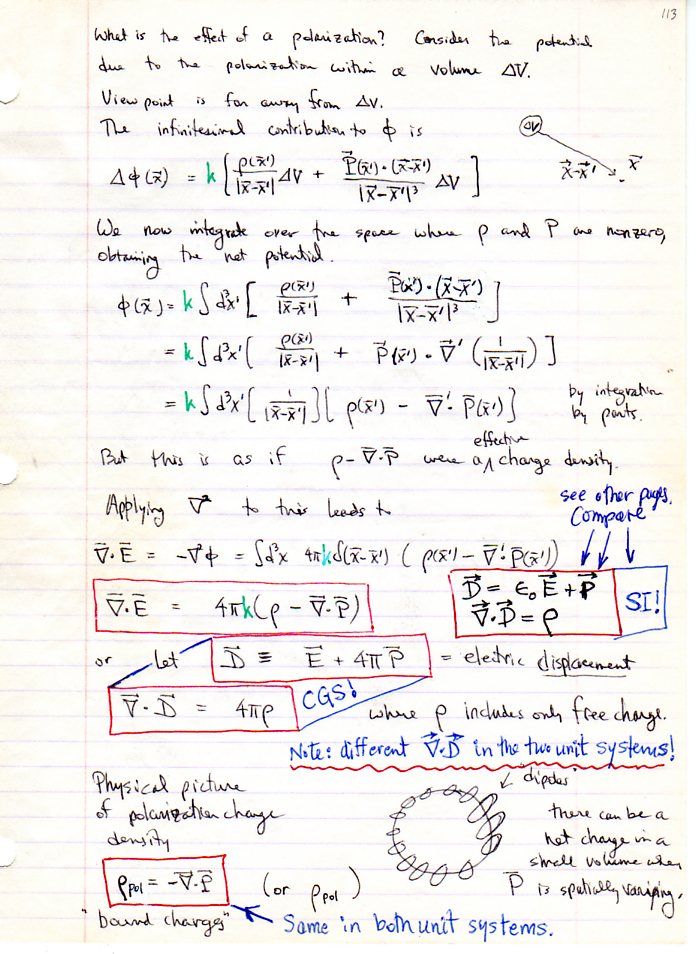 113
What is the effect of a polarization? Consider the potential
due to the polarization within a volume ΔV.
View point is far away from ΔV.
The infinitesimal contribution to ϕ is
ΔV
Δϕ(x⃗) = k [ ρ(x⃗')/|x⃗-x⃗'| ΔV + P⃗(x⃗')·(x⃗-x⃗')/|x⃗-x⃗'|³ ΔV ]
x⃗-x⃗' x⃗
We now integrate over the space where ρ and P are nonzero,
obtaining the net potential.
ϕ(x⃗) = k ∫ d³x' [ ρ(x⃗')/|x⃗-x⃗'| + P⃗(x')·(x⃗-x⃗')/|x⃗-x⃗'|³ ]
= k ∫ d³x' [ ρ(x⃗')/|x⃗-x⃗'| + P⃗(x⃗')·∇⃗' (1/|x⃗-x⃗'|) ]
= k ∫ d³x' [ 1/|x⃗-x⃗'| ] [ ρ(x⃗') - ∇⃗'·P⃗(x⃗') ] by integration
by parts.
effective
But this is as if ρ-∇⃗·P⃗ were a ∧ charge density.
Applying ∇² to this leads to
see other pages.
Compare
∇⃗·E⃗ = -∇²ϕ = ∫d³x 4πkδ(x⃗-x⃗') ( ρ(x⃗') - ∇⃗'·P⃗(x⃗') )
∇⃗·E⃗ = 4πk(ρ - ∇⃗·P⃗)
D⃗ = ε₀E⃗ + P⃗
∇⃗·D⃗ = ρ
SI!
or Let D⃗ ≡ E⃗ + 4πP⃗ = electric displacement
∇⃗·D⃗ = 4πρ CGS!
where ρ includes only free charge.
Note: different ∇⃗·D⃗ in the two unit systems!
Physical picture
of polarization charge
density
"dipoles"
there can be a
net charge in a
small volume when
P⃗ is spatially varying.
ρpol = -∇⃗·P⃗ (or ρpol)
"bound charges"
Same in both unit systems.